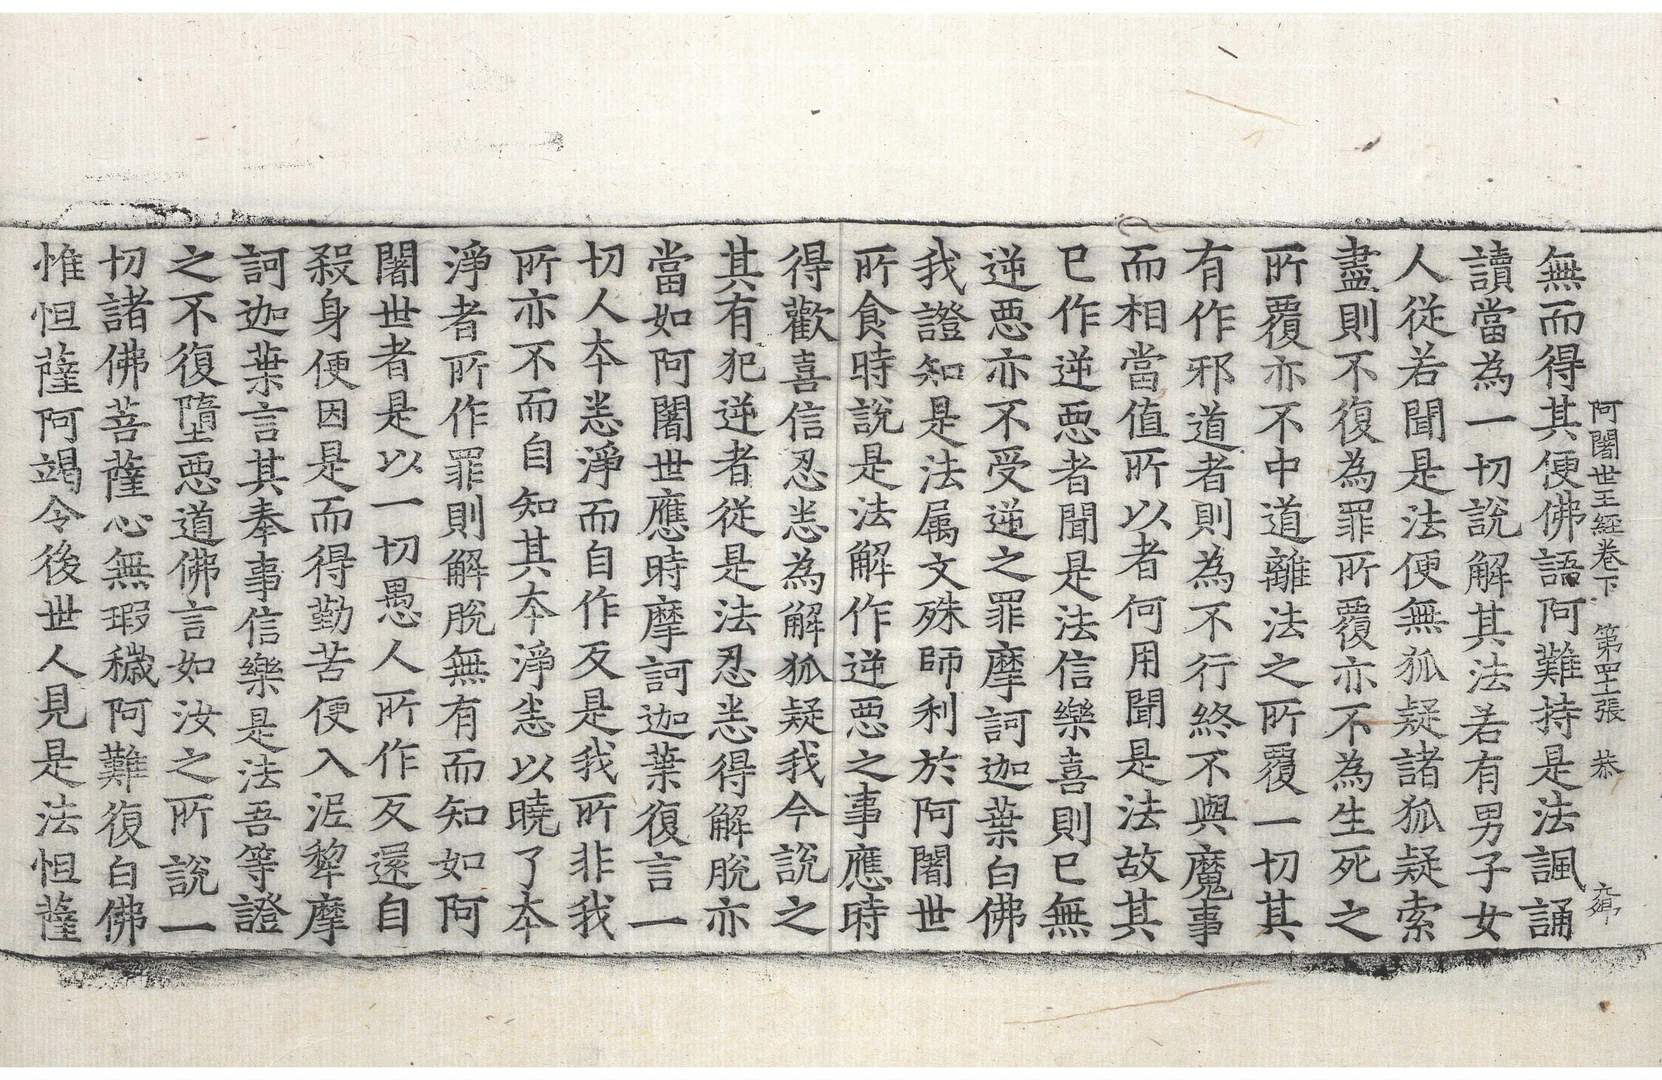 阿闍世王經卷下　第罕張　恭
無而得其便佛語阿難持是法諷誦
讀當為一切說解其法若有男子女
人從若聞是法便無狐疑諸狐疑索
盡則不復為罪所覆亦不為生死之
所覆亦不中道離法之所覆一切其
有作邪道者則為不行終不與魔事
而相當值所以者何用聞是法故其
已作逆惡者聞是法信樂喜則已無
逆惡亦不受逆之罪摩訶迦葉白佛
我證知是法属文殊師利於阿闍世
所食時說是法解作逆惡之事應時
得歡喜信忍悉為解狐疑我今說之
其有犯逆者從是法忍悉得解脫亦
當如阿闍世應時摩訶迦葉復言一
切人夲悉淨而自作反是我所非我
所亦不而自知其夲淨悉以曉了夲
淨者所作罪則解脫無有而知如阿
闍世者是以一切愚人所作反還自
殺身便因是而得勤苦便入泥犂摩
訶迦葉言其奉事信樂是法吾等證
之不復墮惡道佛言如汝之所說一
切諸佛菩薩心無瑕穢阿難復白佛
惟怛薩阿竭令後世人見是法怛薩